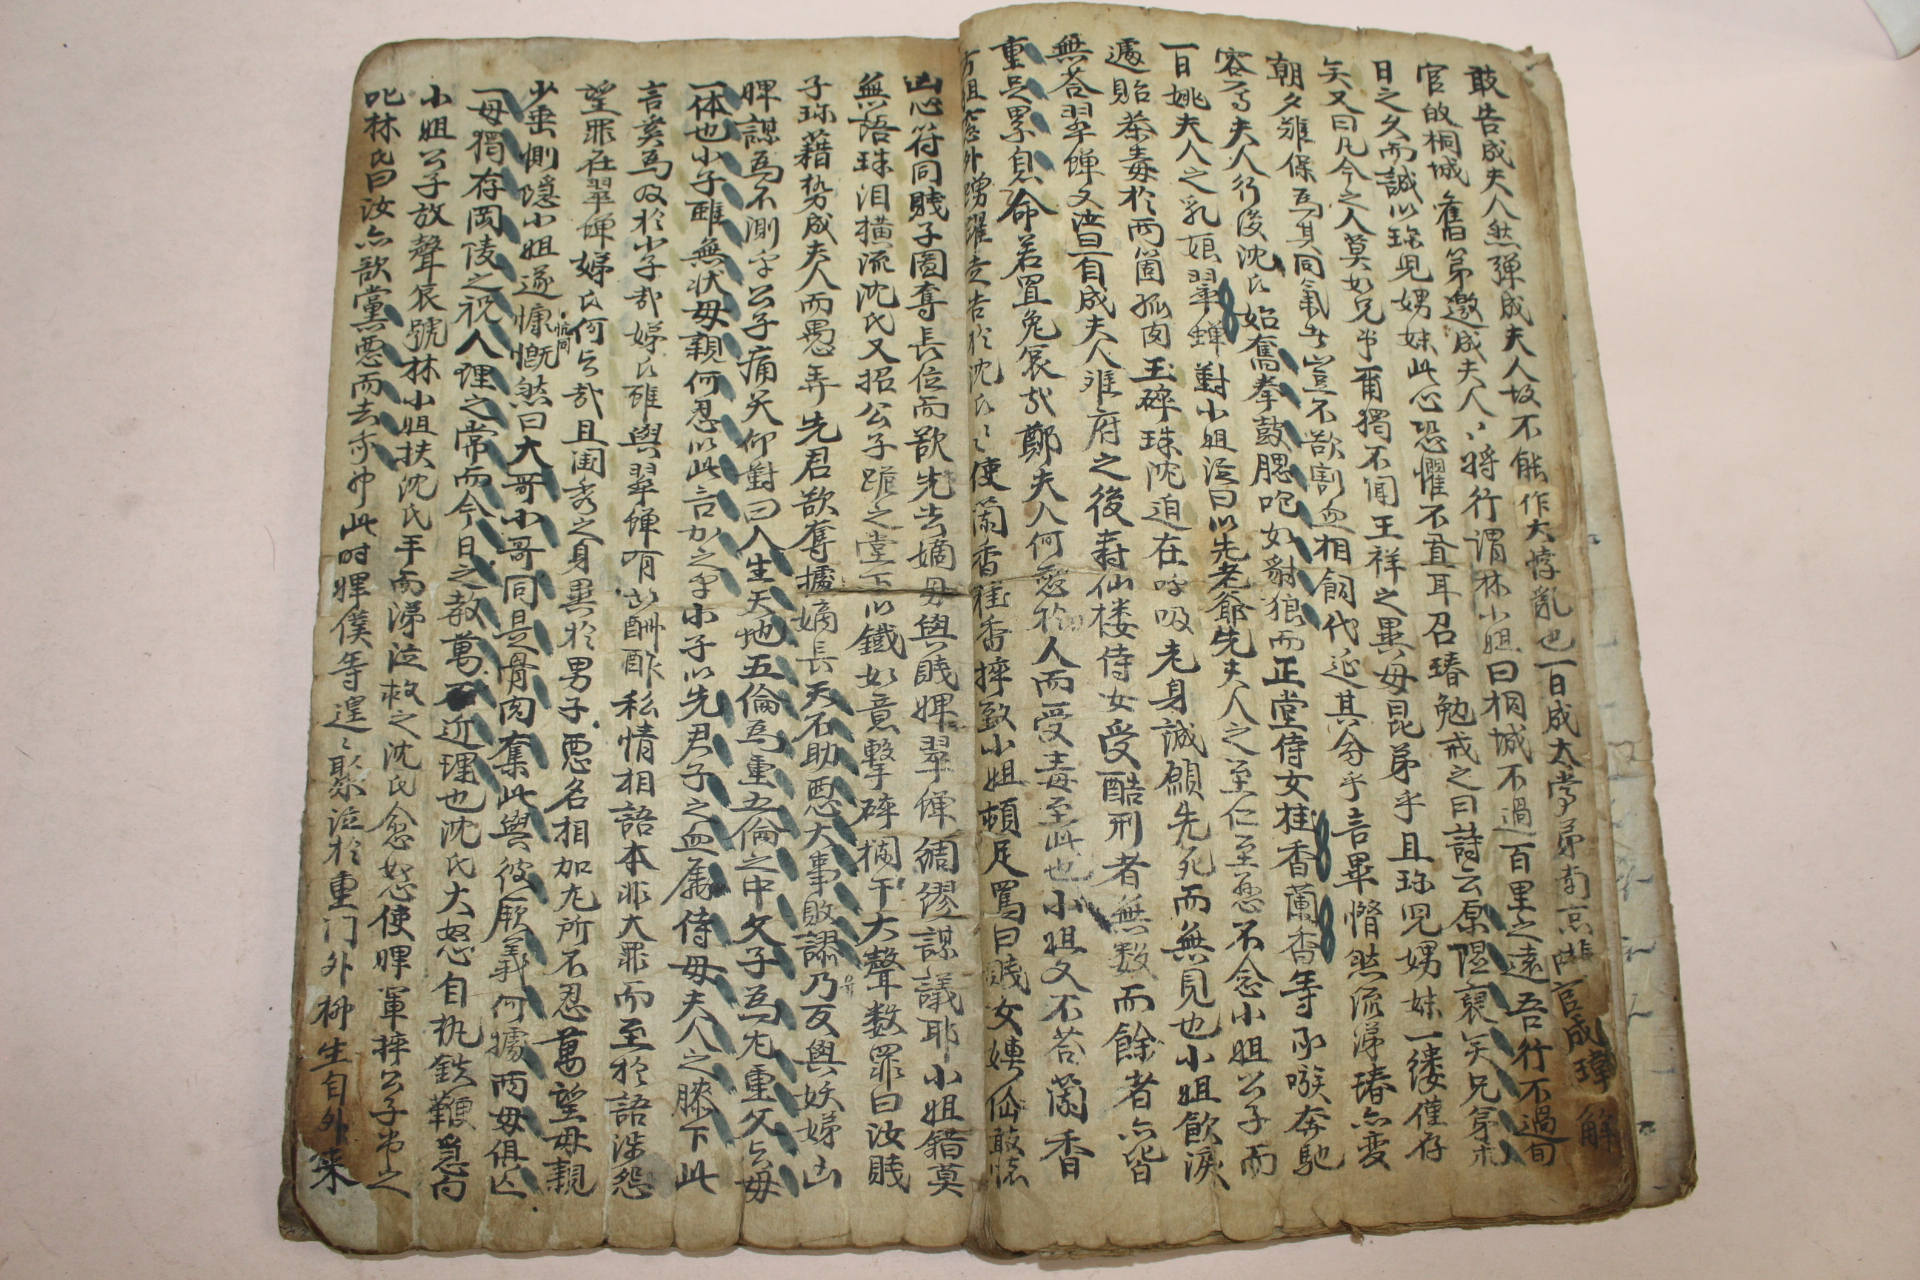 敢告成夫人然彈成夫人故不能作大悖亂也一日成太常弟南京職官成瑋解
官啟桐城舊第邀成夫人〻將行謂林小姐曰桐城不過百里之遠吾行不過旬
日之久而誠以珎兒娚妹此心恐懼不置耳召瑃勉戒之曰詩云原隰裒矣兄弟求
矣又曰凡今之人莫如兄弟爾獨不聞王祥之異母昆弟乎且珎兒娚妹一縷僅存
朝夕難保爲其同氣者豈不欲割血相飼代延其分乎言畢愴然流涕瑃亦変
容焉夫人行後沈氏始奮拳鼓腮咆如豺狼而正堂侍女桂香蘭香等承嗾奔馳
百姚夫人之乳娘翠蟬對小姐泣曰以先老爺先夫人之至仁至慈不念小姐公子而
遽貽荼毒於兩箇孤肉玉碎珠沈迫在呼吸老身誠願先死而無見也小姐飮淚
無荅翠蟬又潛曰自成夫人離府之後壽仙楼侍女受酷刑者無数而餘者亦皆
重足累息命若罝兔哀哉鄭夫人何愆於人而受毒至此也小姐又不荅蘭香
方俎窓外踴躍走告於沈氏〻使蘭香桂香捽致小姐頓足罵曰賤女娉仙敢懐
凶心符同賤子圖奪長位而欲先去嫡母與賤婢翠僤綢繆謀議耶小姐錯莫
無語珠泪橫流沈氏又招公子跪之堂下以鐵如意擊碎欄干大聲数罪曰汝賤
子珎藉势成夫人而愚弄先君欲奪據嫡長天不助惡大事敗謬乃反與妖娣凶
婢謀爲不測乎公子痛哭仰對曰人生天地五倫爲重五倫之中父子爲尢重父与母
一体也小子雖無狀母親何忍以此言加之乎小子以先君子之血屬侍母夫人之膝下此
言奚爲及於小子哉娣氏雖與翠僤有所酬酢私情相語本非大罪而至於語涉怨
望罪在翠僤娣氏何与哉且閨秀之身異於男子惡名相加尢所不忍萬望母親
少垂惻隱小姐遂慷慨然曰大哥小哥同是骨肉奪此與彼厥義何據両母俱亡
一母獨存岡陵之祝人理之常而今日之教萬不近理也沈氏大怒自執鉄鞭急向
小姐公子放聲哀號林小姐扶沈氏手而涕泣救之沈氏愈怒使婢軍捽公子弟之
叱林氏曰汝亦欲黨惡而去乎此时婢僕等遑〻聚泣於重门外柳生自外来